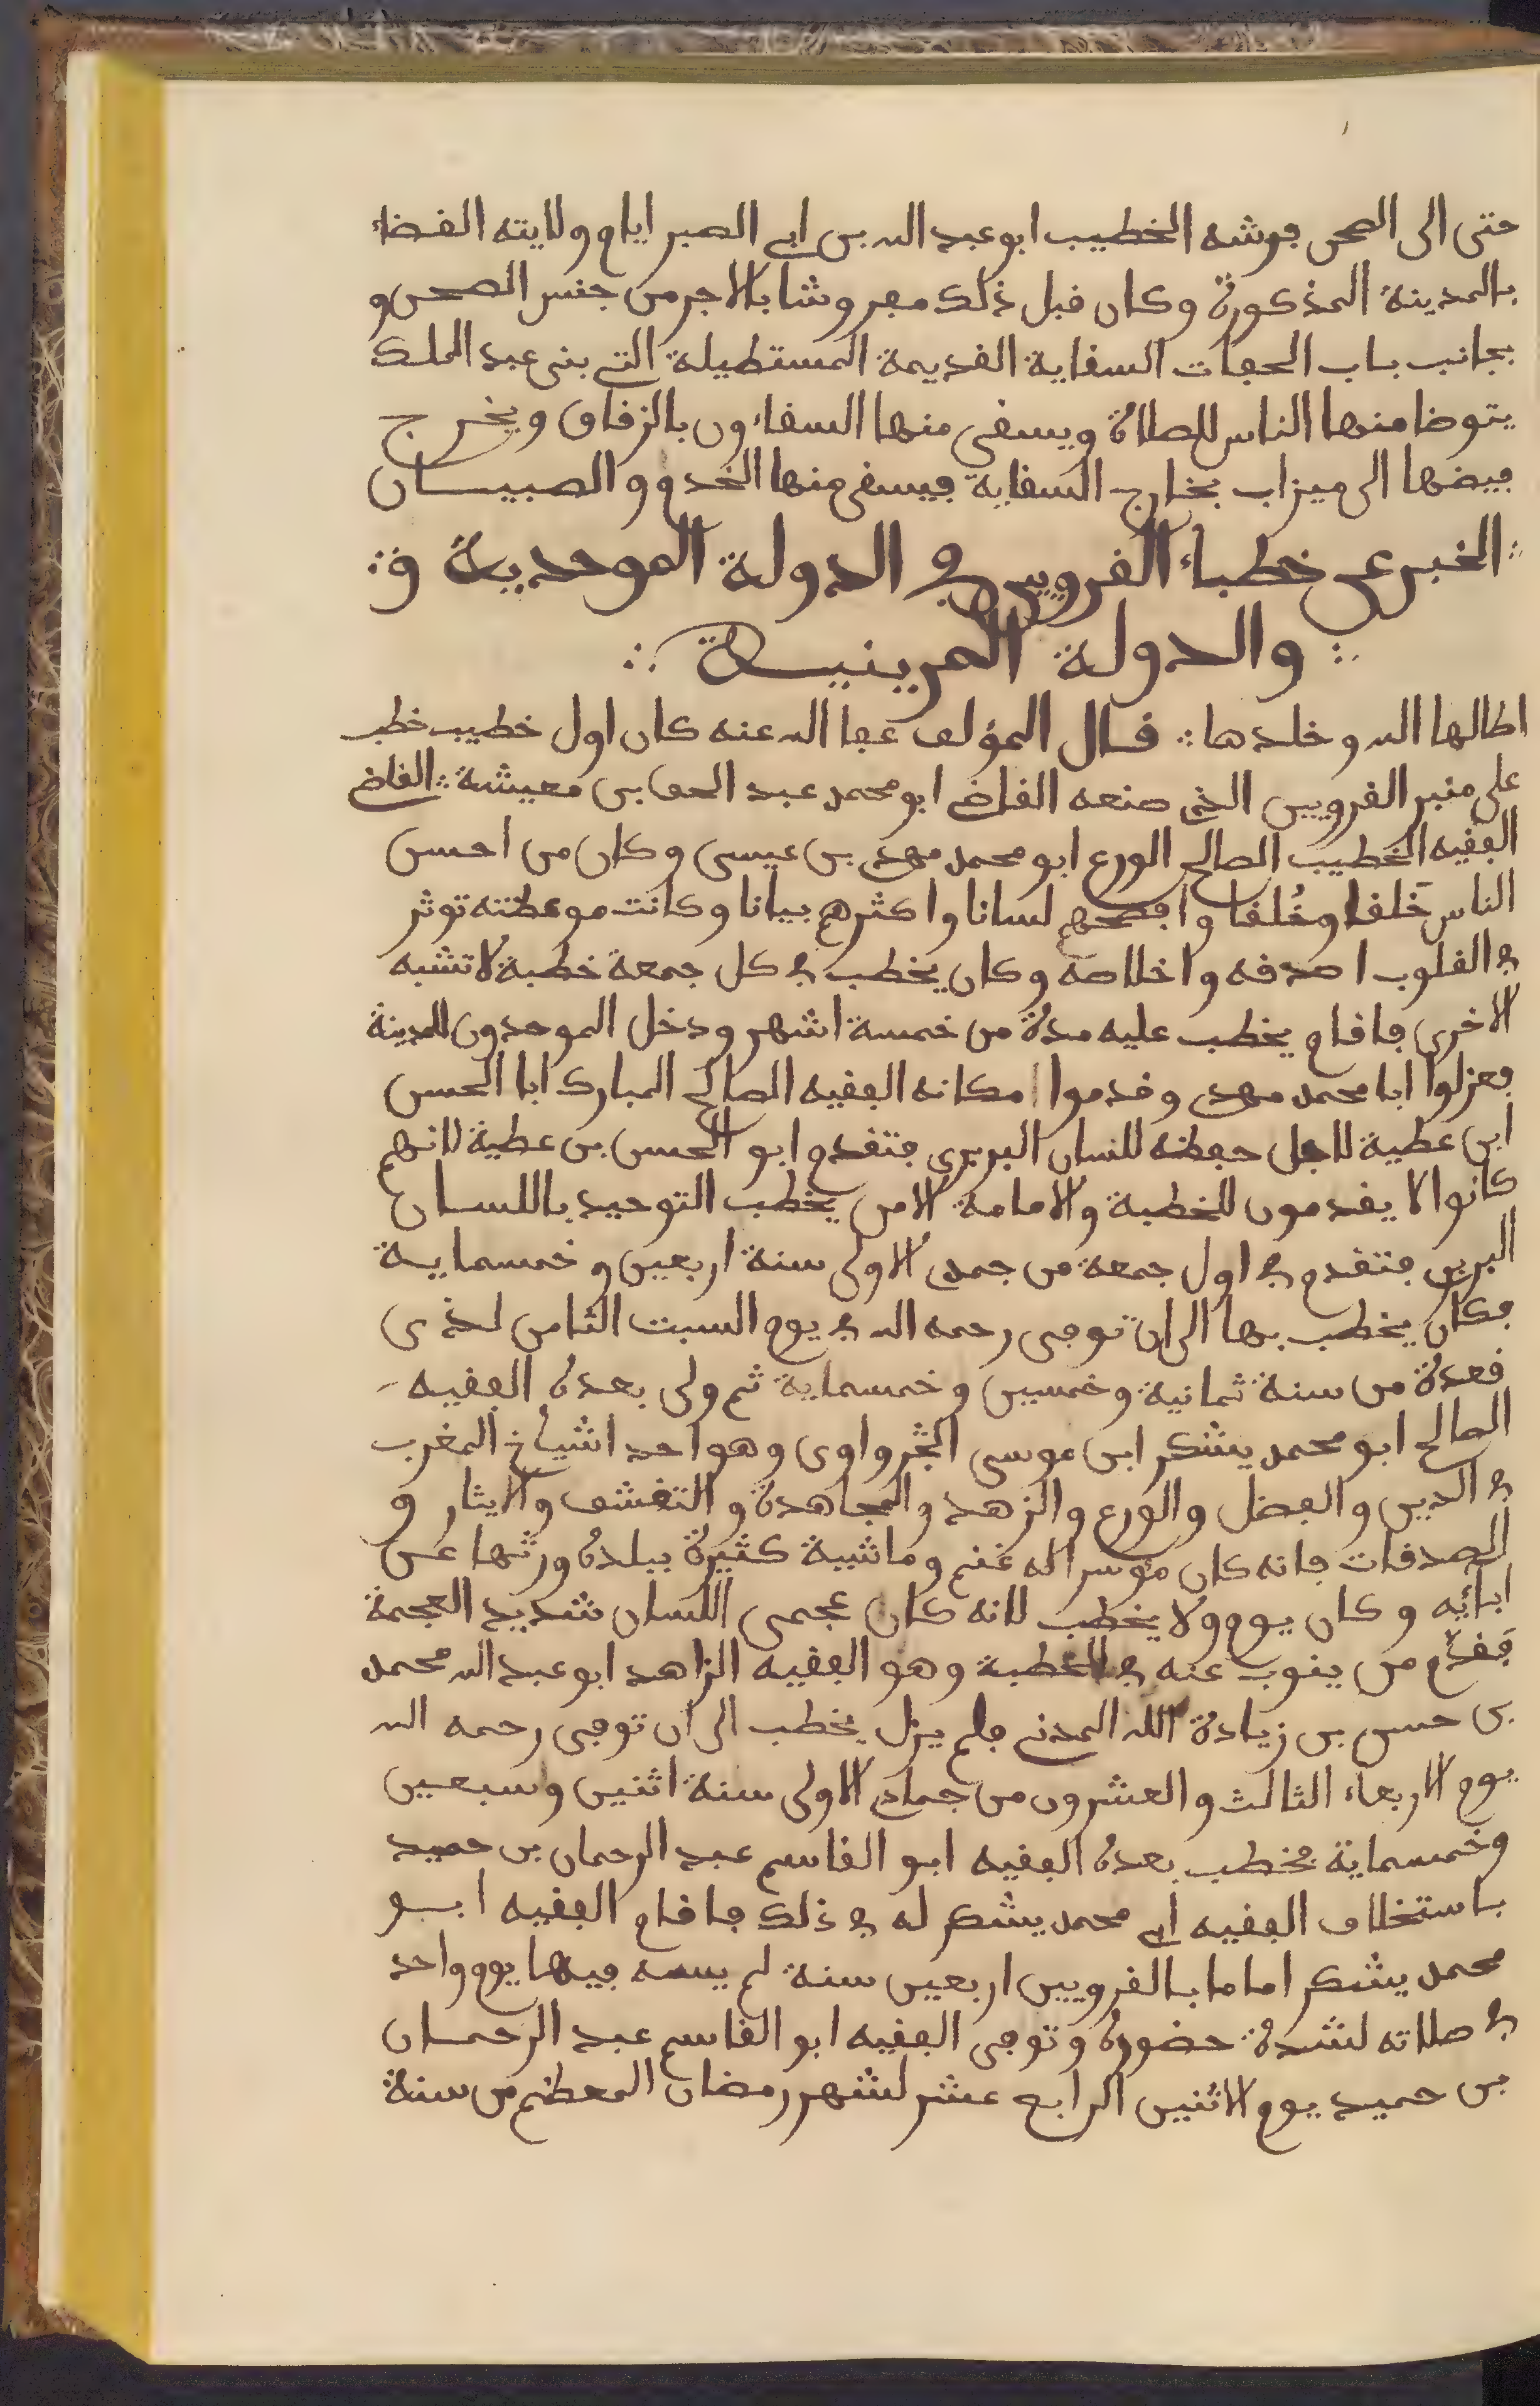 حتى الى الصحن فرشه الخطيب ابو عبد الله بن ابي الصبر ايام ولايته القضاء
بالمدينة المذكورة وكان قبل ذلك مفروشا بالاجر من جنس الصحن و
بجانب باب الحفات السقاية القديمة المستطيلة التي بنى عبد الملك
يتوضا منها الناس للصلاة ويسقي منها السقاءون بالزقاق ويخرج
فيضها الى ميزاب بخارج السقاية فيسقي منها الخدم و الصبيان
الخبر عن خطباء القرويين في الدولة الموحدية و
والدولة المرينية
اطالها الله وخلدها قال المؤلف عفا الله عنه كان اول خطيب خطب
على منبر القرويين الذي صنعه القاضي ابو محمد عبد الحق بن معيشة القاضي
الفقيه الخطيب الصالح الورع ابو محمد مهدي بن عيسى وكان من احسن
الناس خَلقا وخُلقا وافصحهم لسانا واكثرهم بيانا وكانت موعظته توثر
في القلوب اصدقه واخلاصه وكان يخطب في كل جمعة خطبة لا تشبه
الاخرى فاقام يخطب عليه مدة من خمسة اشهر ودخل الموحدون للمدينة
فعزلوا ابا محمد مهدي وقدموا مكانه الفقيه الصالح المبارك ابا الحسن
ابن عطية لاجل حفظه للنسان البربري فتقدم ابو الحسن بن عطية لانهم
كانوا لا يقدمون للخطبة والامامة الا من يخطب التوحيد باللسان
البربري فتقدم في اول جمعة من جمدى الاولى سنة اربعين وخمسماية
فكان يخطب بها الى ان توفي رحمه الله في يوم السبت الثامن لذي
قعدة من سنة ثمانية وخمسين وخمسماية ثم ولى بعده الفقيه
الصالح ابو محمد يشكر ابن موسى الجرواوي وهو احد اشياخ المغرب
في الدين والفضل والورع والزهد والمجاهدة والتقشف والايثار و
الصدقات فانه كان موسرا له غنم وماشية كثيرة ببلده ورثها عن
ابائه وكان يوم ولا يخطب لانه كان عجمي اللسان شديد العجمة
فقدّم من ينوب عنه في الخطبة وهو الفقيه الزاهد ابو عبد الله محمد
بن حسن بن زيادة الله المدني فلم يزل يخطب الى ان توفي رحمه الله
يوم الاربعاء الثالث والعشرون من جمادى الاولى سنة اثنين وسبعين
وخمسماية فخطب بعده الفقيه ابو القاسم عبد الرحمان بن حميد
باستخلاف الفقيه ابي محمد يشكر له في ذلك فاقام الفقيه ابو
محمد يشكر اماما بالقرويين اربعين سنة لم يسه فيها يوم واحد
في صلاته لشدة حضوره وتوفي الفقيه ابو القاسم عبد الرحمان
بن حميد يوم الاثنين الرابع عشر لشهر رمضان المعظم من سنة